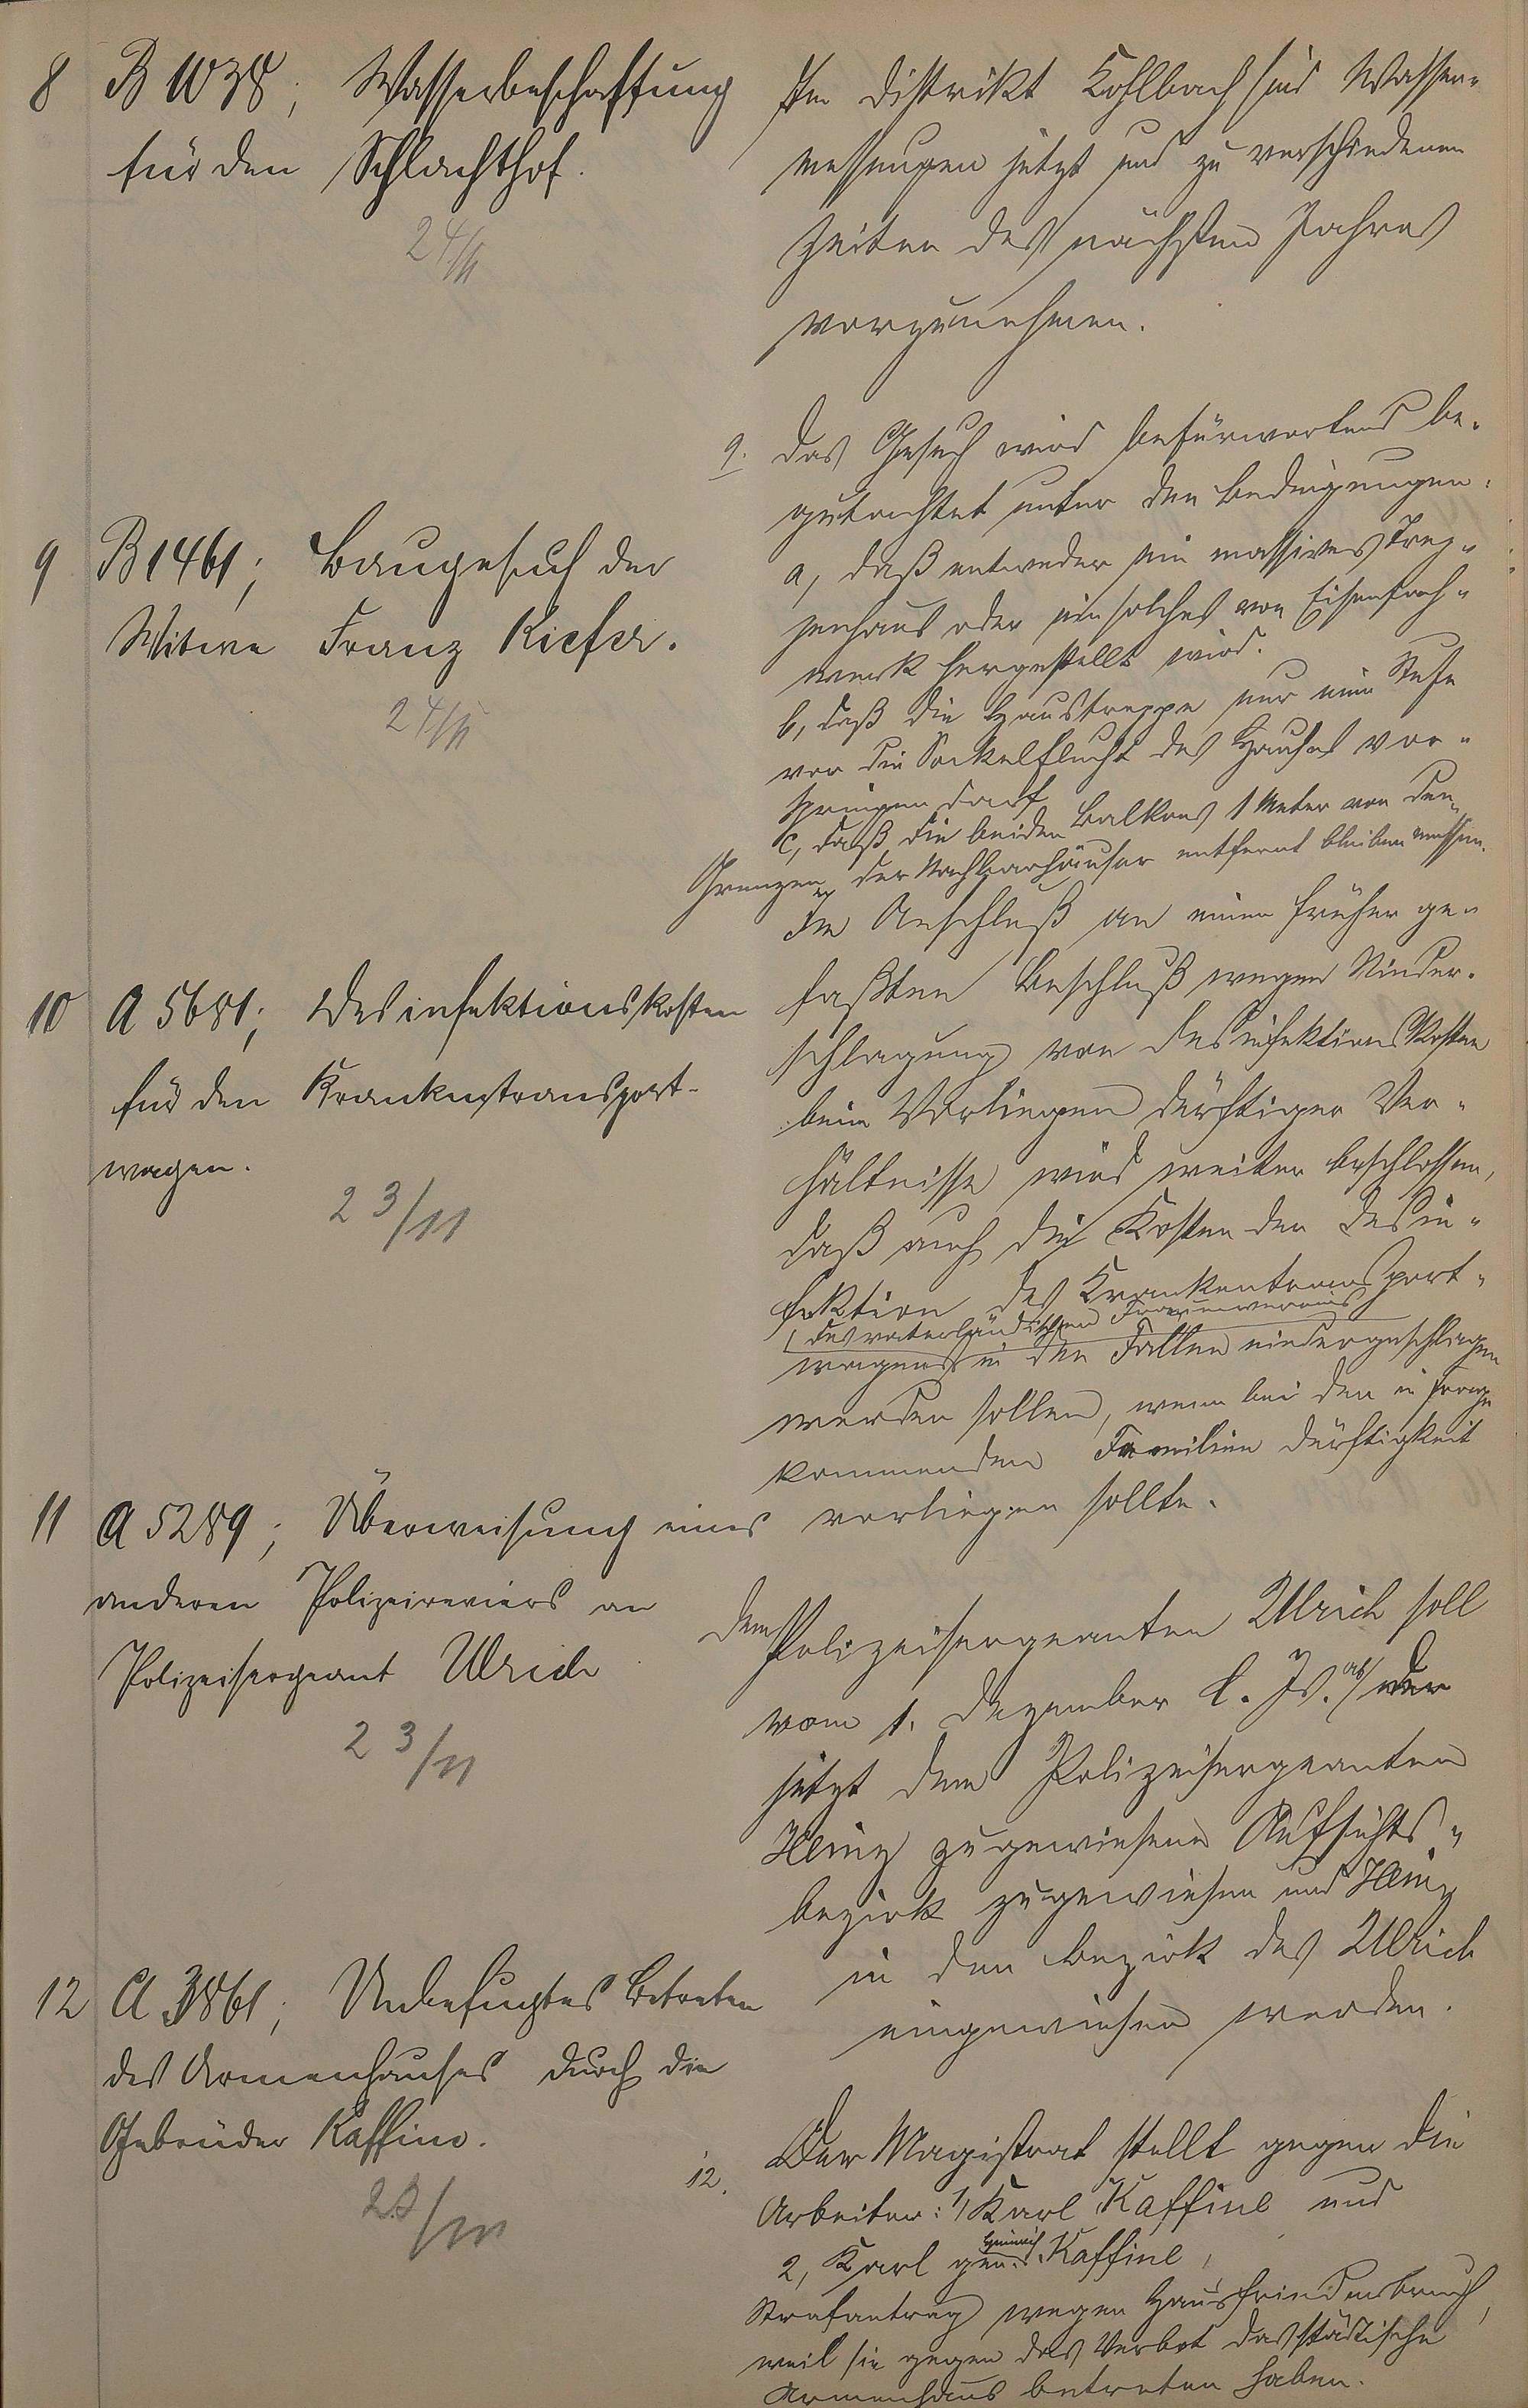 8 B 1038; Wasserbeschaffung
für den Schlachthof.
24/11
Im Distrikt Kohlbach sind Wasser-
messungen jetzt und zu verschiedenen
Zeiten des nächsten Jahres
vorzunehmen.
9 B 1461; Baugesuch der
Witwe Franz Kiefer.
24/11
9. Das Gesuch wird befürwortend be-
gutachtet unter den Bedingungen:
a, daß entweder ein massives Trep-
penhaus oder ein solches von Eisenfach-
werk hergestellt wird.
b, daß die Haustreppe nur eine Stufe
vor die Sockelflucht des Hauses vor-
springen darf
c, daß die beiden Balkons 1 Meter von den
Grenzen der Nachbarhäuser entfernt bleiben müssen.
10 A 5681; Desinfektionskosten
für den Krankentransport-
wagen.
23/11
Im Anschluß an einen früher ge-
faßten Beschluß wegen Nieder-
schlagung von Desinfektionskosten
beim Vorliegen dürftiger Ver-
hältnisse wird weiter beschlossen,
daß auch die Kosten der Desin-
fektion des Krankentransport-
des vaterländischen Frauenvereins
wagens in den Fällen niedergeschlagen
werden sollen, wenn bei den in Frage
kommenden Familien Dürftigkeit
vorliegen sollte.
11 A 5289; Überweisung eines
anderen Polizeireviers an
Polizeisergeant Ulrich
23/11
Dem Polizeisergeanten Ulrich soll
vom 1. Dezember l. Js. ab der
jetzt dem Polizeisergeanten
zugewiesene Aufsichts-
bezirk zugewiesen und
in den Bezirk des Ulrich
eingewiesen werden.
12 A 3861; Unbefugtes Betreten
des Armenhauses durch die
Gebrüder Kaffine.
23/11
12. Der Magistrat stellt gegen die
Arbeiter: 1, Karl Kaffine und
2, Karl gen. Heinrich Kaffine,
Strafantrag wegen Hausfriedensbruch,
weil sie gegen das Verbot das städtische
Armenhaus betreten haben.